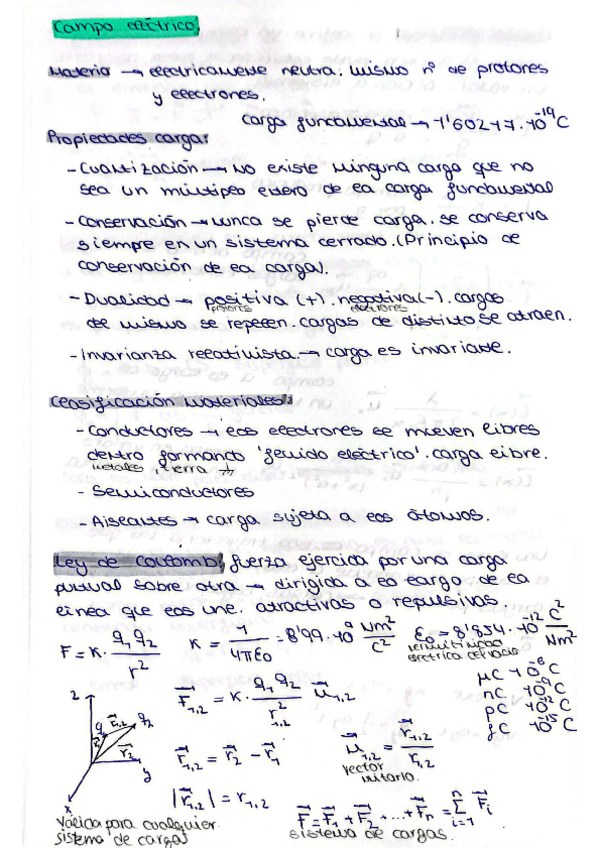 Campo eléctrico
Materia → eléctricamente neutra. mismo nº de protones
y electrones.
carga fundamental → 1'60217·10⁻¹⁹C
Propiedades carga:
- Cuantización → No existe ninguna carga que no
sea un múltiplo entero de la carga fundamental
- Conservación → nunca se pierde carga. se conserva
siempre en un sistema cerrado. (Principio de
conservación de la carga).
- Dualidad → positiva (+). negativa (-). cargas
protones electrones
del mismo se repelen. cargas de distinto se atraen.
- Invarianza relativista. → carga es invariante.
Clasificación Materiales:
- Conductores → los electrones se mueven libres
dentro formando 'fluido eléctrico'. carga libre.
metales, tierra ⏚
- Semiconductores
- Aislantes → carga sujeta a los átomos.
Ley de Coulomb: fuerza ejercida por una carga
puntual sobre otra → dirigida a lo largo de la
línea que los une. atractivas o repulsivas.
F = K · q₁q₂/r² K = 1/4πε₀ = 8'99·10⁹ Nm²/C² ε₀ = 8'854·10⁻¹² C²/Nm²
permitividad
eléctrica del vacío
μC → 10⁻⁶C
nC → 10⁻⁹C
pC → 10⁻¹²C
fC → 10⁻¹⁵C
F⃗₁,₂ = K · q₁q₂/r²₁,₂ u⃗₁,₂
z
q₁ r⃗₁,₂ q₂
r⃗₁ r⃗₂
y
x
r⃗₁,₂ = r⃗₂ - r⃗₁
u⃗₁,₂ = r⃗₁,₂/r₁,₂
vector
unitario.
|r⃗₁,₂| = r₁,₂
válida para cualquier
sistema de cargas
F⃗ = F⃗₁ + F⃗₂ + ... + F⃗n = Σⁿᵢ₌₁ F⃗ᵢ
sistema de cargas.